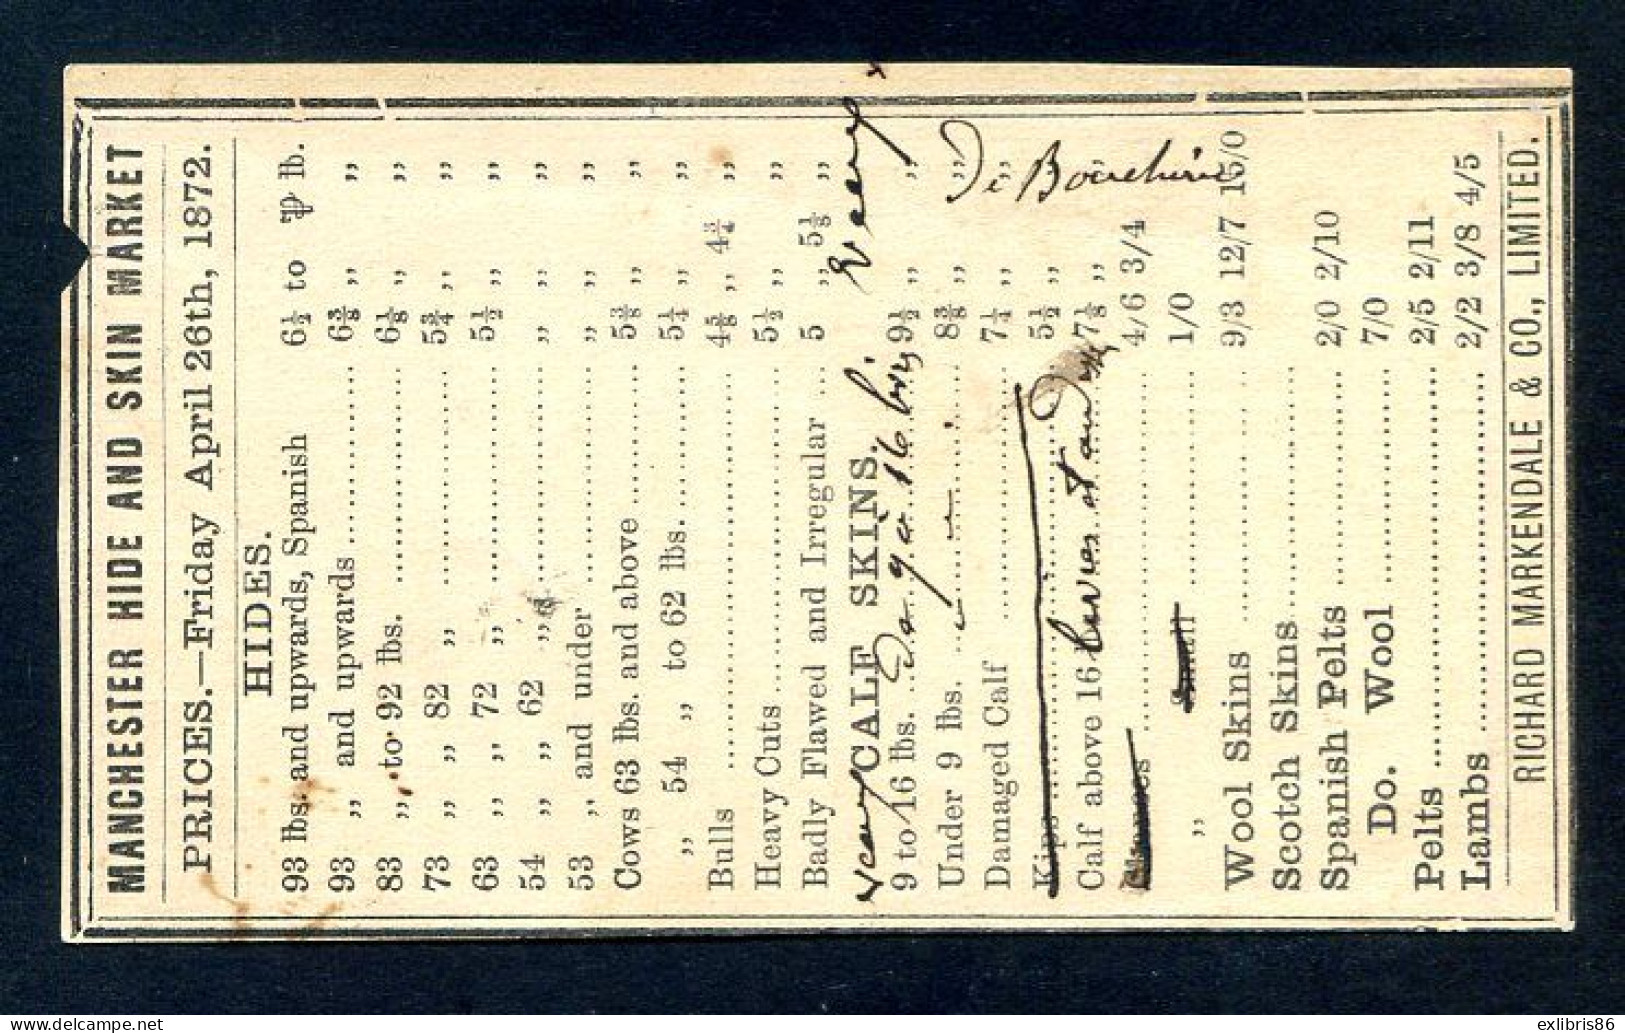 MANCHESTER HIDE AND SKIN MARKET
PRICES.—Friday April 26th, 1872.
HIDES.
93 lbs. and upwards, Spanish 6½ to ⅌ lb.
93 „ and upwards .......... 6⅜ „ „
83 „ to 92 lbs. .......... 6⅛ „ „
73 „ „ 82 „ .......... 5¾ „ „
63 „ „ 72 „ .......... 5½ „ „
54 „ „ 62 „ .......... „ „ „
53 „ and under .......... „ „ „
Cows 63 lbs. and above .......... 5⅜ „ „
„ 54 „ to 62 lbs. .......... 5¼ „ „
Bulls .......... 4⅝ „ 4¾ „
Heavy Cuts .......... 5½ „ „
Badly Flawed and Irregular .. 5 „ 5⅛ „
Veaux CALF SKINS. Veaux
9 to 16 lbs. .. De 9 à 16 9½ „ „
Under 9 lbs. .......... 8⅜ „ „
Damaged Calf .......... 7¼ „ „
De Boucherie
Kips .......... 5½ „
Calf above 16 livres et au dessus 7⅛ „ „
.......... 4/6 3/4
„ Small .......... 1/0
Wool Skins .......... 9/3 12/7 15/0
Scotch Skins ..........
Spanish Pelts .......... 2/0 2/10
Do. Wool .......... 7/0
Pelts .......... 2/5 2/11
Lambs .......... 2/2 3/8 4/5
RICHARD MARKENDALE & CO., LIMITED.
exlibris86